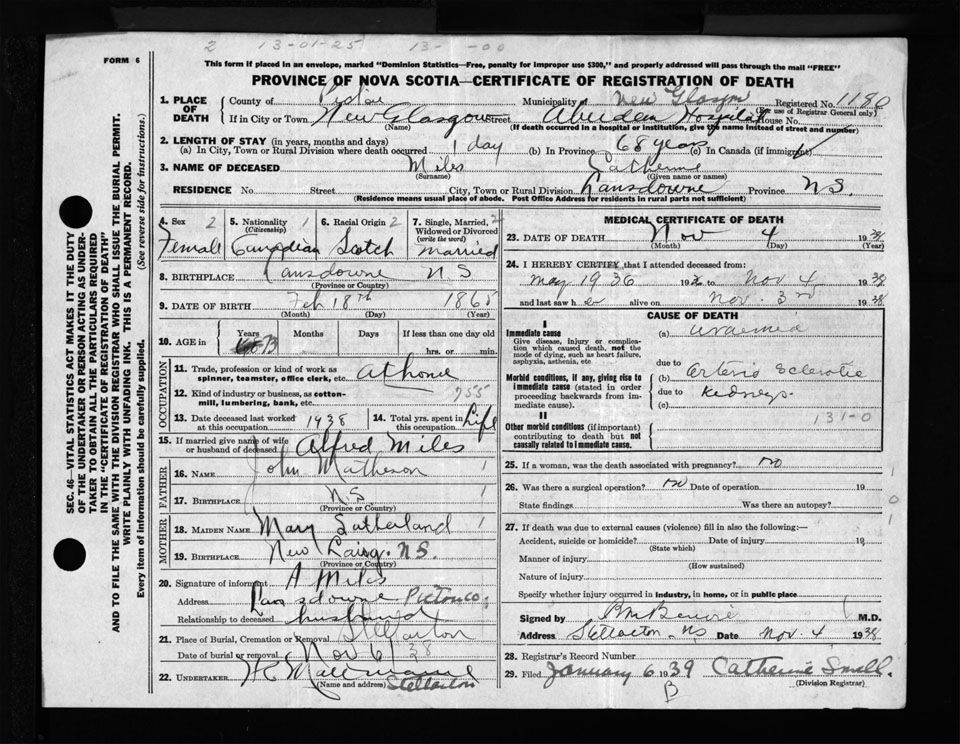 2 13-01-25 13- -00
FORM 6
This form if placed in an envelope, marked "Dominion Statistics—Free, penalty for improper use $300," and properly addressed will pass through the mail "FREE"
PROVINCE OF NOVA SCOTIA—CERTIFICATE OF REGISTRATION OF DEATH
SEC. 46—VITAL STATISTICS ACT MAKES IT THE DUTY
OF THE UNDERTAKER OR PERSON ACTING AS UNDER-
TAKER TO OBTAIN ALL THE PARTICULARS REQUIRED
IN THE "CERTIFICATE OF REGISTRATION OF DEATH"
AND TO FILE THE SAME WITH THE DIVISION REGISTRAR WHO SHALL ISSUE THE BURIAL PERMIT.
WRITE PLAINLY WITH UNFADING INK. THIS IS A PERMANENT RECORD.
Every item of information should be carefully supplied. (See reverse side for instructions.)
1. PLACE OF DEATH County of Pictou Municipality of New Glasgow Registered No. 1180
(For use of Registrar General only)
If in City or Town New Glasgow Street Aberdeen Hospital House No.
(Name) (If death occurred in a hospital or institution, give the name instead of street and number)
2. LENGTH OF STAY (in years, months and days)
(a) In City, Town or Rural Division where death occurred 1 day (b) In Province 68 years (c) In Canada (if immigrant)
3. NAME OF DECEASED Miles Catherine
(Surname) (Given name or names)
RESIDENCE No. Street City, Town or Rural Division Lansdowne Province N.S.
(Residence means usual place of abode. Post Office Address for residents in rural parts not sufficient)
4. Sex 2 5. Nationality 1 (Citizenship) 6. Racial Origin 2 7. Single, Married, Widowed or Divorced (write the word)
Female Canadian Scotch married
8. BIRTHPLACE Lansdowne N S
(Province or Country)
9. DATE OF BIRTH Feb 18th 1865
(Month) (Day) (Year)
10. AGE IN Years Months Days If less than one day old
73 hrs. or min.
OCCUPATION
11. Trade, profession or kind of work as
spinner, teamster, office clerk, etc. at home
12. Kind of industry or business, as cotton-
mill, lumbering, bank, etc. 955
13. Date deceased last worked at this occupation 1938 14. Total yrs. spent in this occupation Life
15. If married give name of wife
or husband of deceased Alfred Miles
FATHER
16. NAME John Matheson 1
17. BIRTHPLACE N S 1
(Province or Country)
MOTHER
18. MAIDEN NAME Mary Sutherland 1
19. BIRTHPLACE New Lairg. N.S.
(Province or Country)
20. Signature of informant A Miles
Address Lansdowne Pictou Co.
Relationship to deceased husband
21. Place of Burial, Cremation or Removal Stellarton
Date of burial or removal Nov 6/38
22. UNDERTAKER
(Name and address) Stellarton
MEDICAL CERTIFICATE OF DEATH
23. DATE OF DEATH Nov 4 1938
(Month) (Day) (Year)
24. I HEREBY CERTIFY that I attended deceased from:
may 1936 19 to Nov 4 1938
and last saw her alive on Nov. 3rd 1938
CAUSE OF DEATH
I
Immediate cause
Give disease, injury or complica-
tion which caused death, not the
mode of dying, such as heart failure,
asphyxia, asthenia, etc
(a) Uraemia
due to
Morbid conditions, if any, giving rise to
immediate cause (stated in order
proceeding backwards from im-
mediate cause).
(b) arterio Sclerotic
due to kidneys
(c)
II
131-0
Other morbid conditions (if important)
contributing to death but not
causally related to immediate cause.
25. If a woman, was the death associated with pregnancy? no
26. Was there a surgical operation? no Date of operation 19
State findings Was there an autopsy?
27. If death was due to external causes (violence) fill in also the following:—
Accident, suicide or homicide? Date of injury 19
(State which)
Manner of injury
(How sustained)
Nature of injury
Specify whether injury occurred in industry, in home, or in public place
Signed by M.D.
Address Stellarton NS Date Nov. 4 1938
28. Registrar's Record Number
29. Filed January 6 1939 Catherine Small.
(Division Registrar)
B